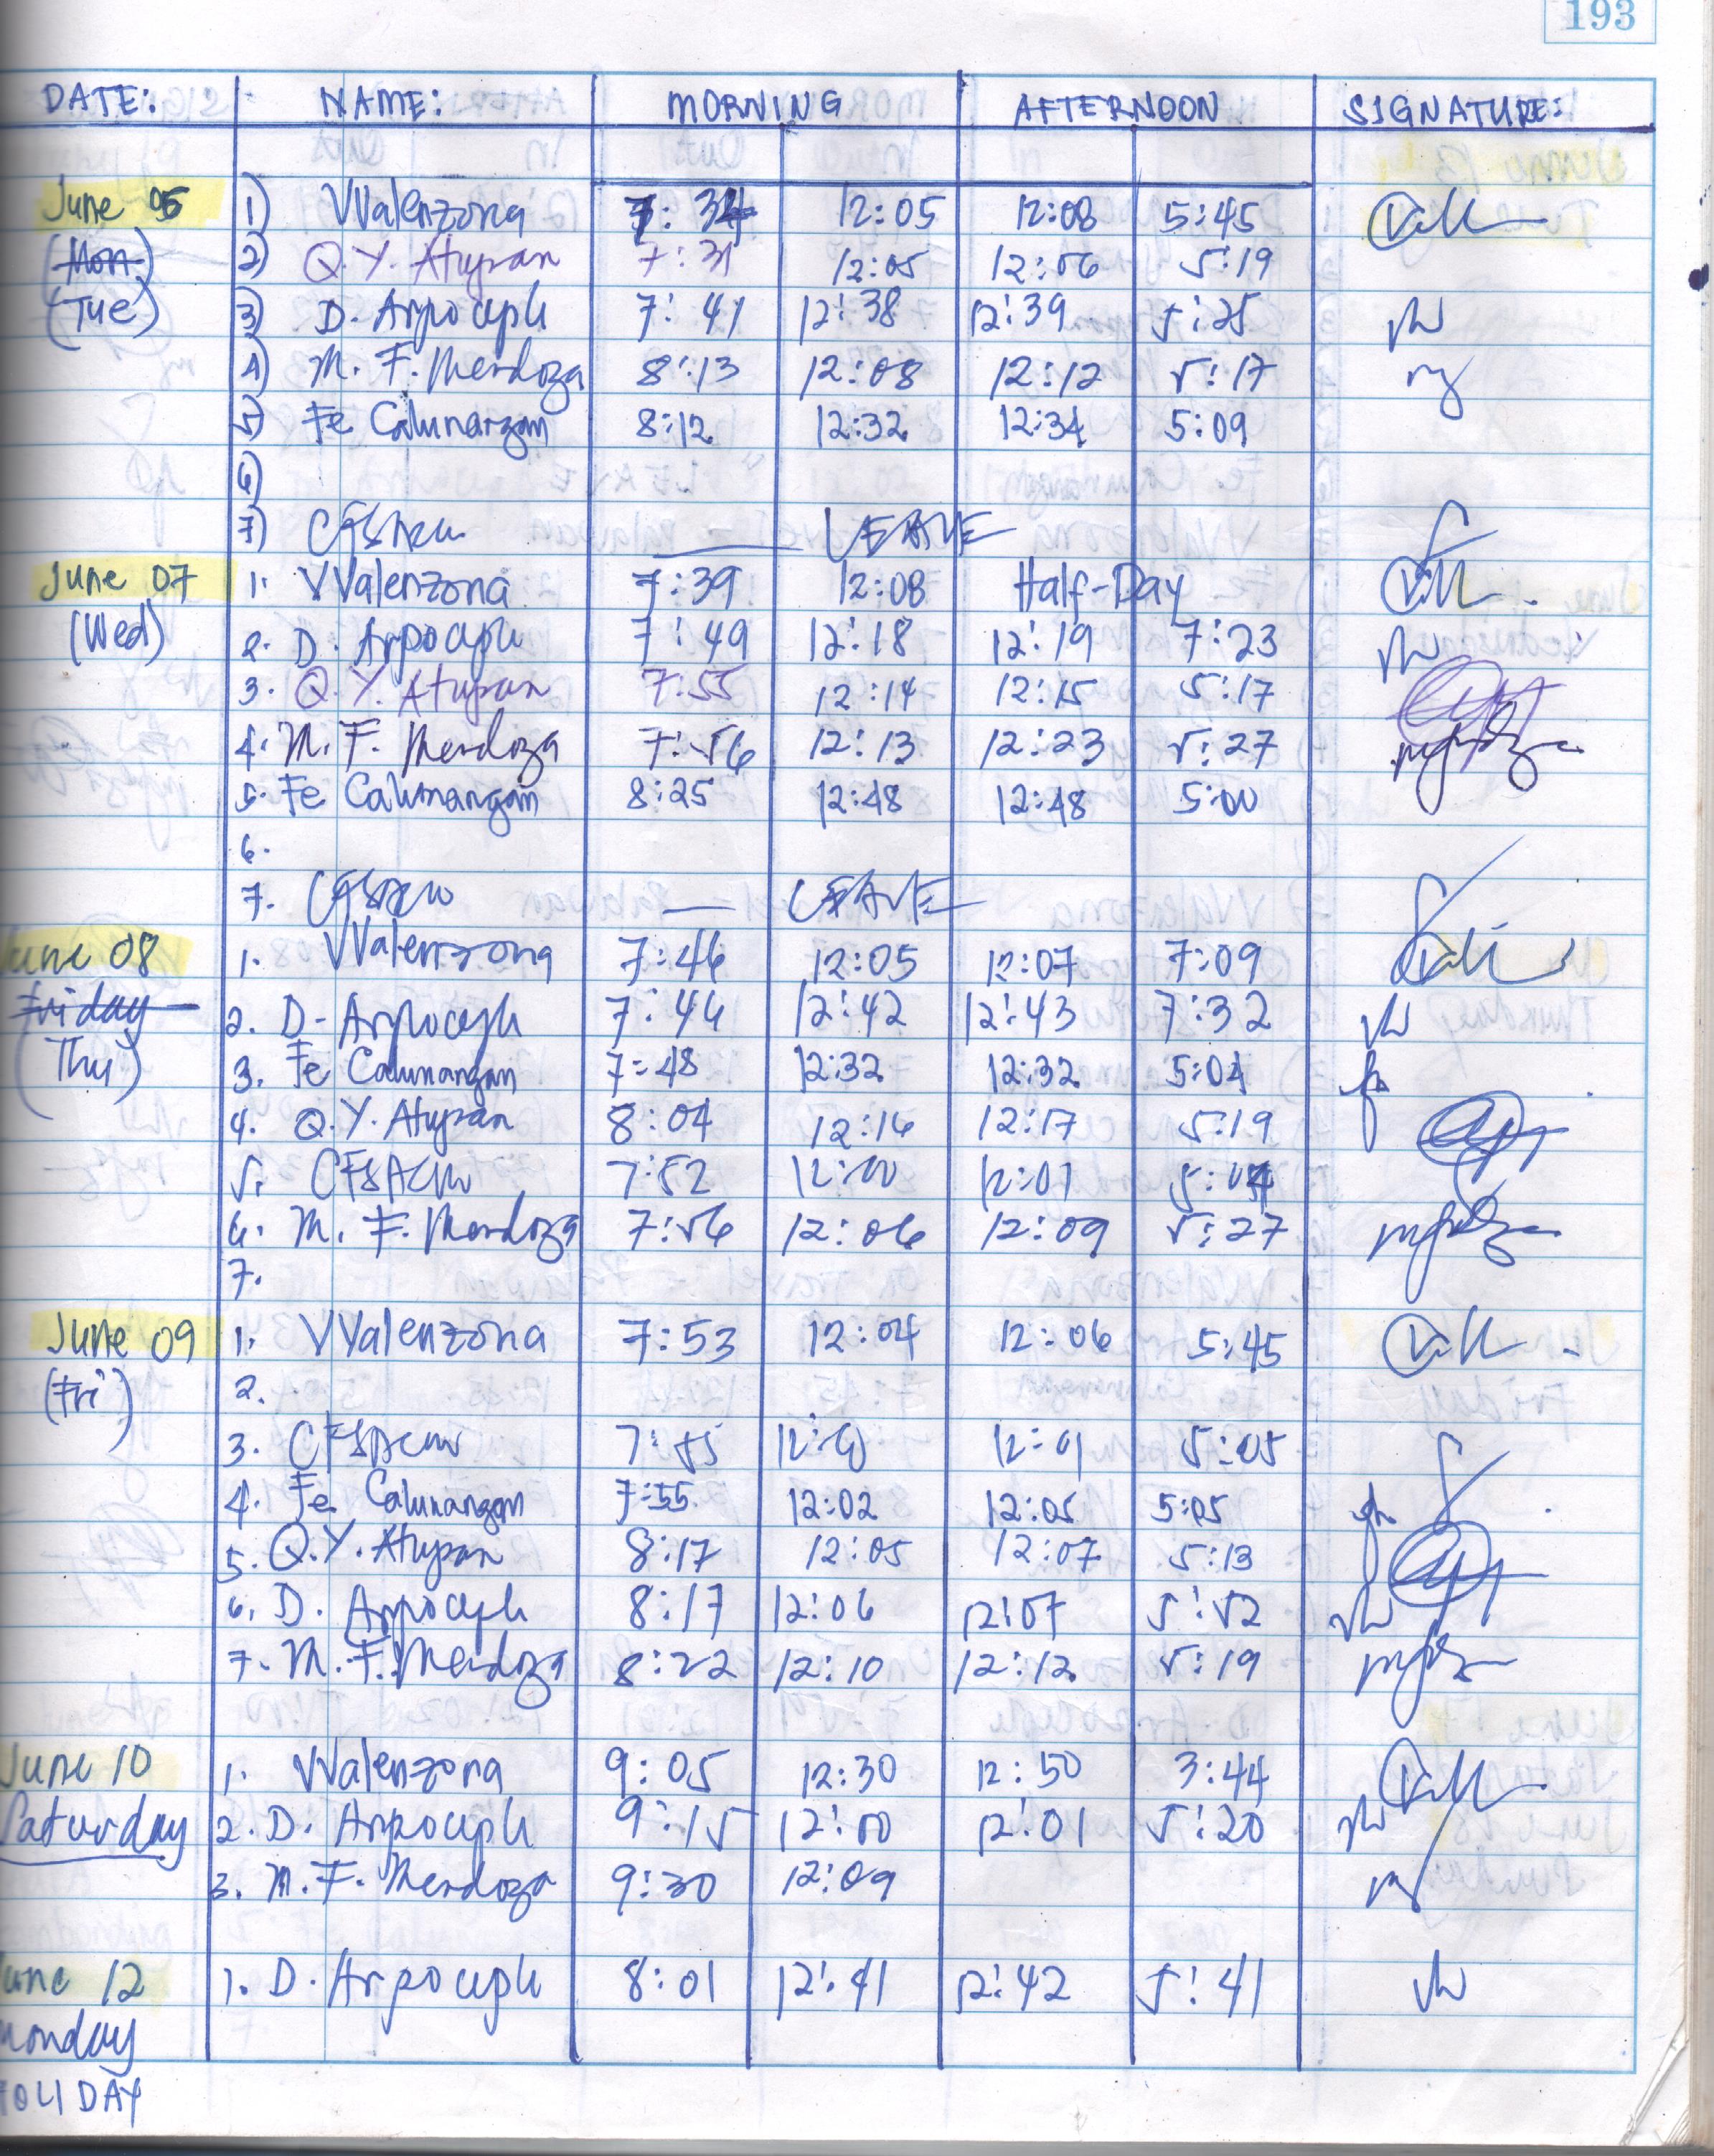 193
DATE: NAME: MORNING AFTERNOON SIGNATURE:
June 05 1) VValenzona 7:34 12:05 12:08 5:45
(Mon) 2) Q.Y. Atupan 7:31 12:05 12:06 5:19
(Tue) 3) D. Arpoceph 7:41 12:38 12:39 5:25
4) M. F. Mendoza 8:13 12:08 12:12 5:17
5) Fe Calumangan 8:12 12:32 12:34 5:09
6)
7) LEAVE
June 07 1. VValenzona 7:39 12:08 Half-Day
(Wed) 2. D. Arpoceph 7:49 12:18 12:19 7:23
3. Q.Y. Atupan 7:55 12:14 12:15 5:17
4. M. F. Mendoza 7:56 12:13 12:23 5:27
5. Fe Calumangan 8:25 12:48 12:48 5:00
6.
7. LEAVE
June 08 1. VValenzona 7:46 12:05 12:07 7:09
Friday 2. D. Arpoceph 7:44 12:42 12:43 7:32
(Thu) 3. Fe Calumangan 7:48 12:32 12:32 5:04
4. Q.Y. Atupan 8:04 12:16 12:17 5:19
5. 7:52 12:00 12:01 5:04
6. M. F. Mendoza 7:56 12:06 12:09 5:27
7.
June 09 1. VValenzona 7:53 12:04 12:06 5:45
(Fri) 2.
3. 7:55 12:01 5:05
4. Fe Calumangan 7:55 12:02 12:05 5:05
5. Q.Y. Atupan 8:17 12:05 12:07 5:13
6. D. Arpoceph 8:17 12:06 12:07 5:52
7. M. F. Mendoza 8:22 12:10 12:12 5:19
June 10 1. VValenzona 9:05 12:30 12:50 3:44
Saturday 2. D. Arpoceph 9:15 12:00 12:01 5:20
3. M. F. Mendoza 9:30 12:09
June 12 1. D. Arpoceph 8:01 12:41 12:42 5:41
Monday
HOLIDAY